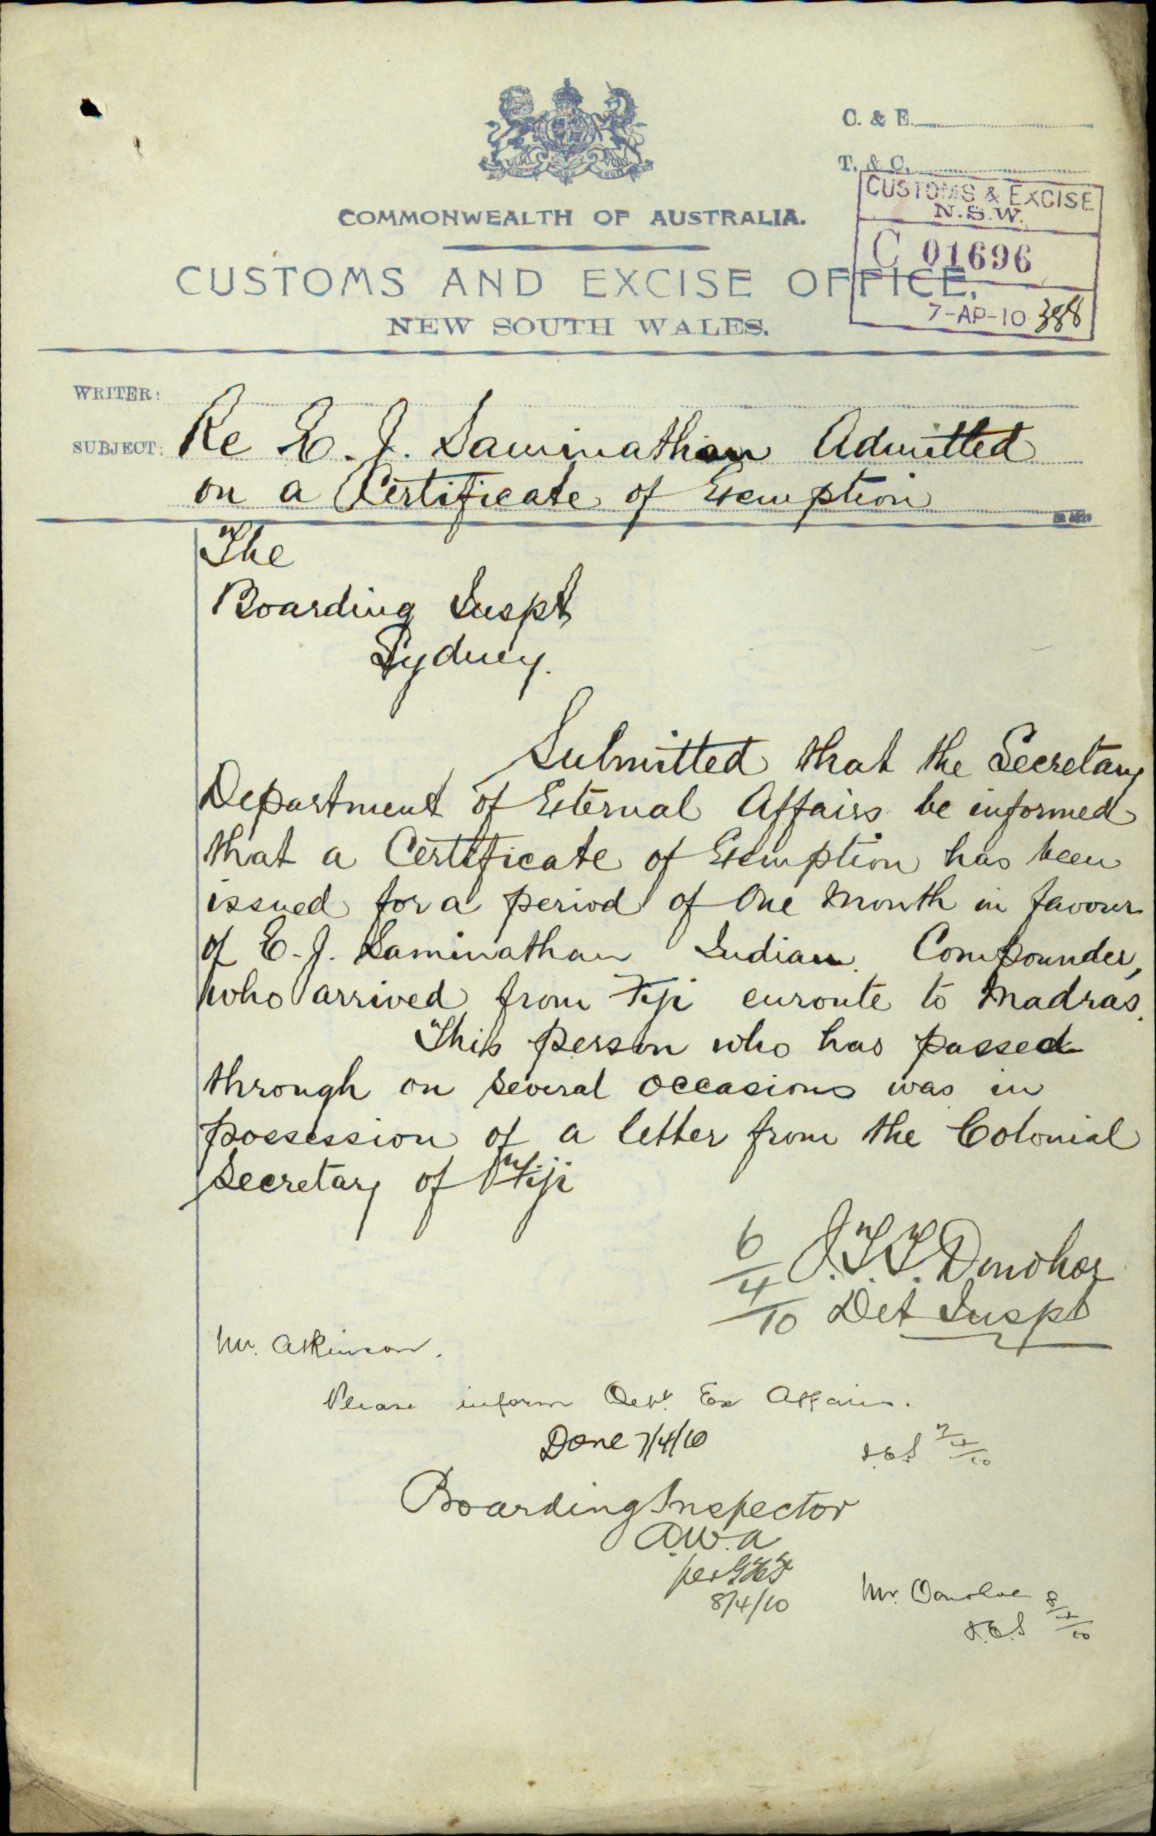 C. & E.
T. & C.
CUSTOMS & EXCISE
N.S.W.
C 01696
7-AP-10 388
COMMONWEALTH OF AUSTRALIA.
CUSTOMS AND EXCISE OFFICE,
NEW SOUTH WALES.
WRITER:
SUBJECT: Re E. J. Saminathan Admitted
on a Certificate of Exemption
The
Boarding Inspt
Sydney.
Submitted that the Secretary
Department of External Affairs be informed
that a Certificate of Exemption has been
issued for a period of One Month in favour
of E. J. Saminathan Indian Compounder,
who arrived from Fiji enroute to Madras.
This person who has passed
through on several occasions was in
possession of a letter from the Colonial
Secretary of Fiji
6/4/10 J.T.T. Donohoe
Det Inspt
Mr. Atkinson.
Please inform Dept. Ex Affairs.
Done 7/4/10
7/4/10
Boarding Inspector
A.W.A
per
8/4/10
Mr. Donohoe 8/4/10